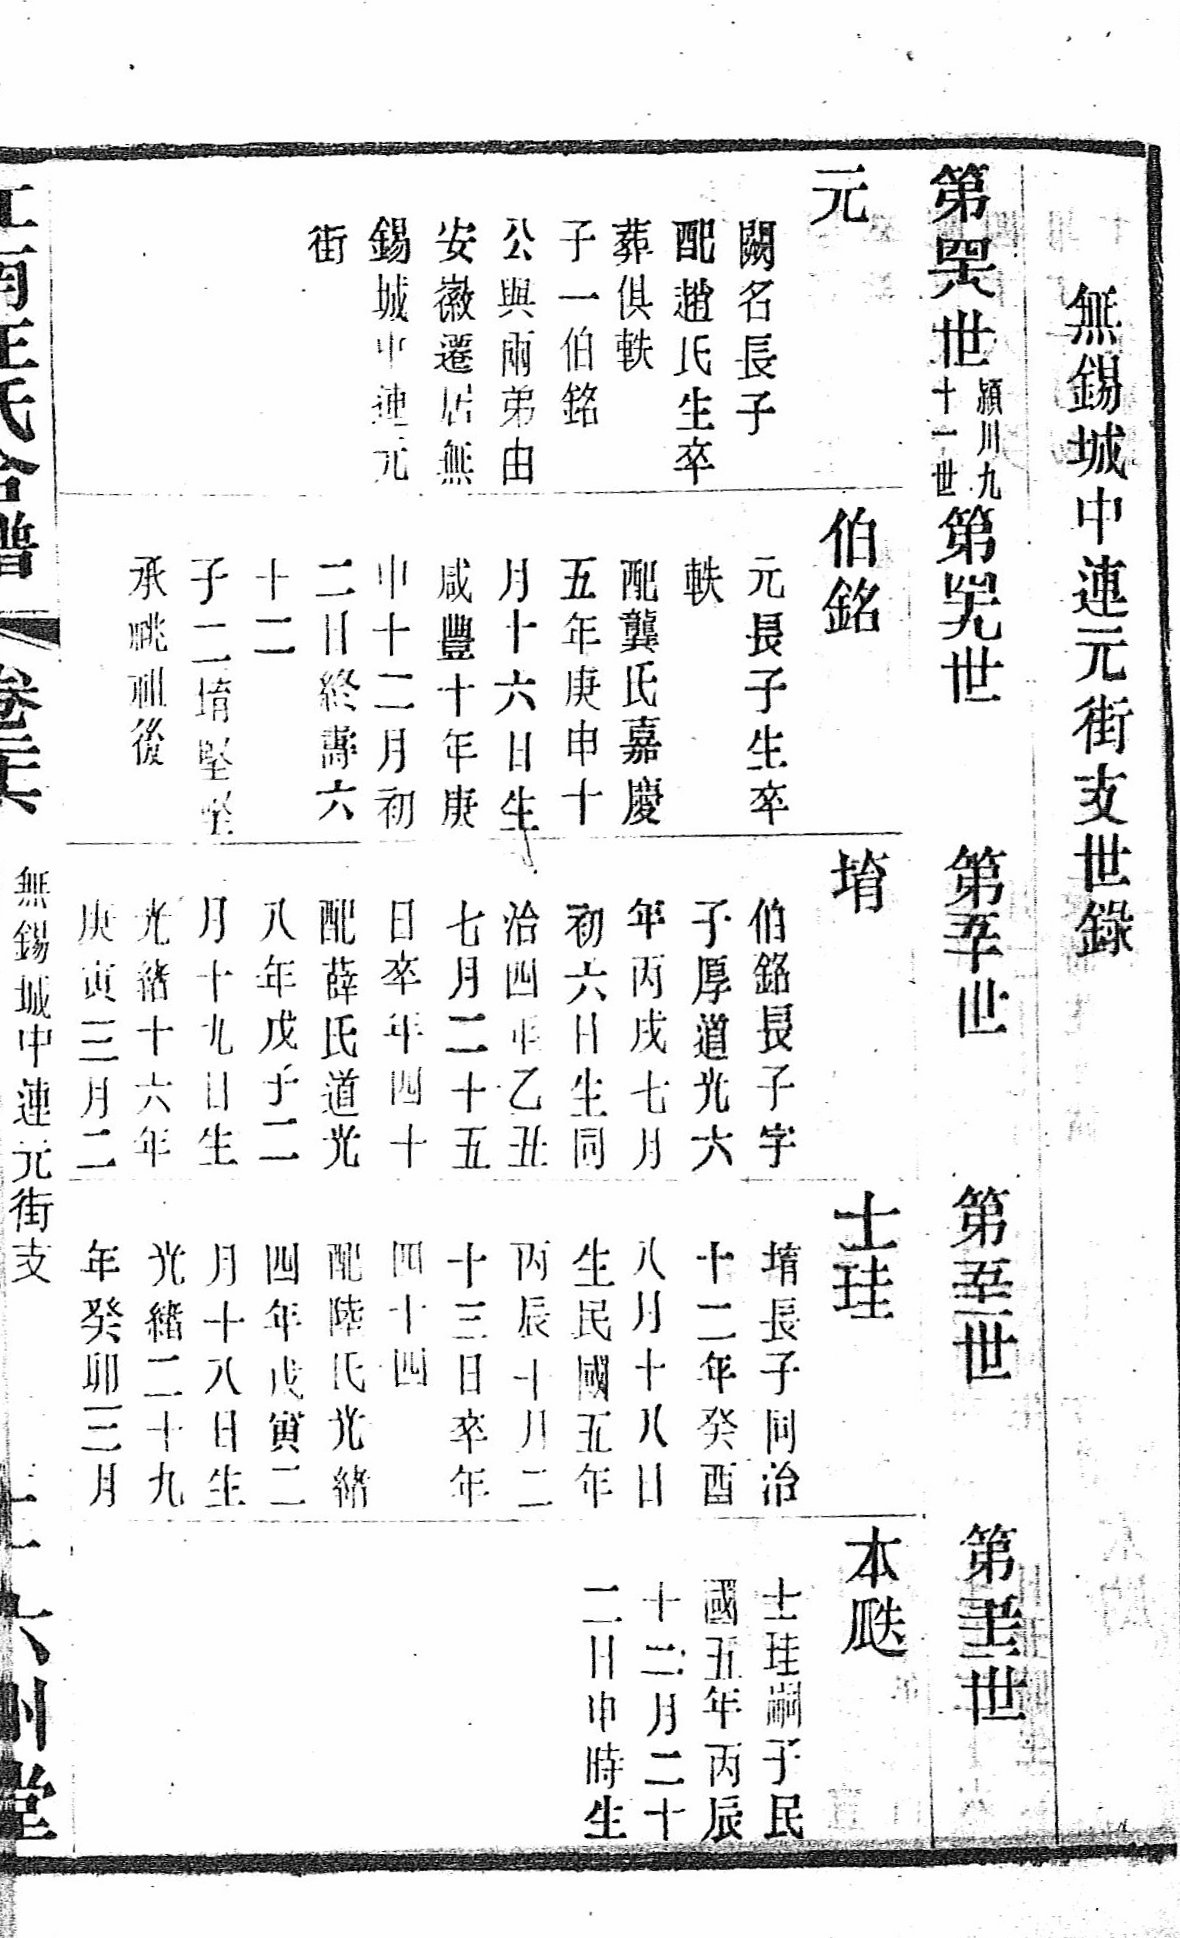 無錫城中連元街支世錄
第四八世
潁川九
十一世
第四九世
第五十世
第五一世
第五二世
元
闕名長子
配趙氏生卒
葬俱軼
子一伯銘
公與兩弟由
安徽遷居無
錫城中連元
街
伯銘
元長子生卒
軼
配龔氏嘉慶
五年庚申十
月十六日生
咸豐十年庚
申十二月初
二日終壽六
十二
子二堉堅堅
承祧祖後
堉
伯銘長子字
子厚道光六
年丙戌七月
初六日生同
治四年乙丑
七月二十五
日卒年四十
配薛氏道光
八年戊子二
月十九日生
光緒十六年
庚寅三月二
士珪
堉長子同治
十二年癸酉
八月十八日
生民國五年
丙辰十月二
十三日卒年
四十四
配陸氏光緒
四年戊寅二
月十八日生
光緒二十九
年癸卯三月
本瓞
士珪嗣子民
國五年丙辰
十二月二十
二日申時生
江南汪氏合譜
無錫城中連元街支
六州堂